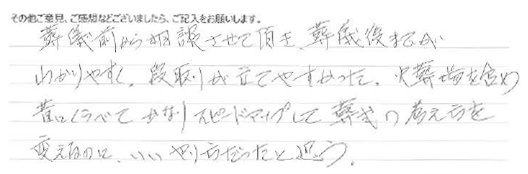 その他ご意見、ご感想などございましたら、ご記入をお願いします。
葬儀前から相談させて頂き、葬儀後までが
わかりやすく、段取りが立てやすかった。火葬場を含め
昔にくらべてかなりスピードアップして葬式の考え方を
変えるのに、いいやり方だったと思う。